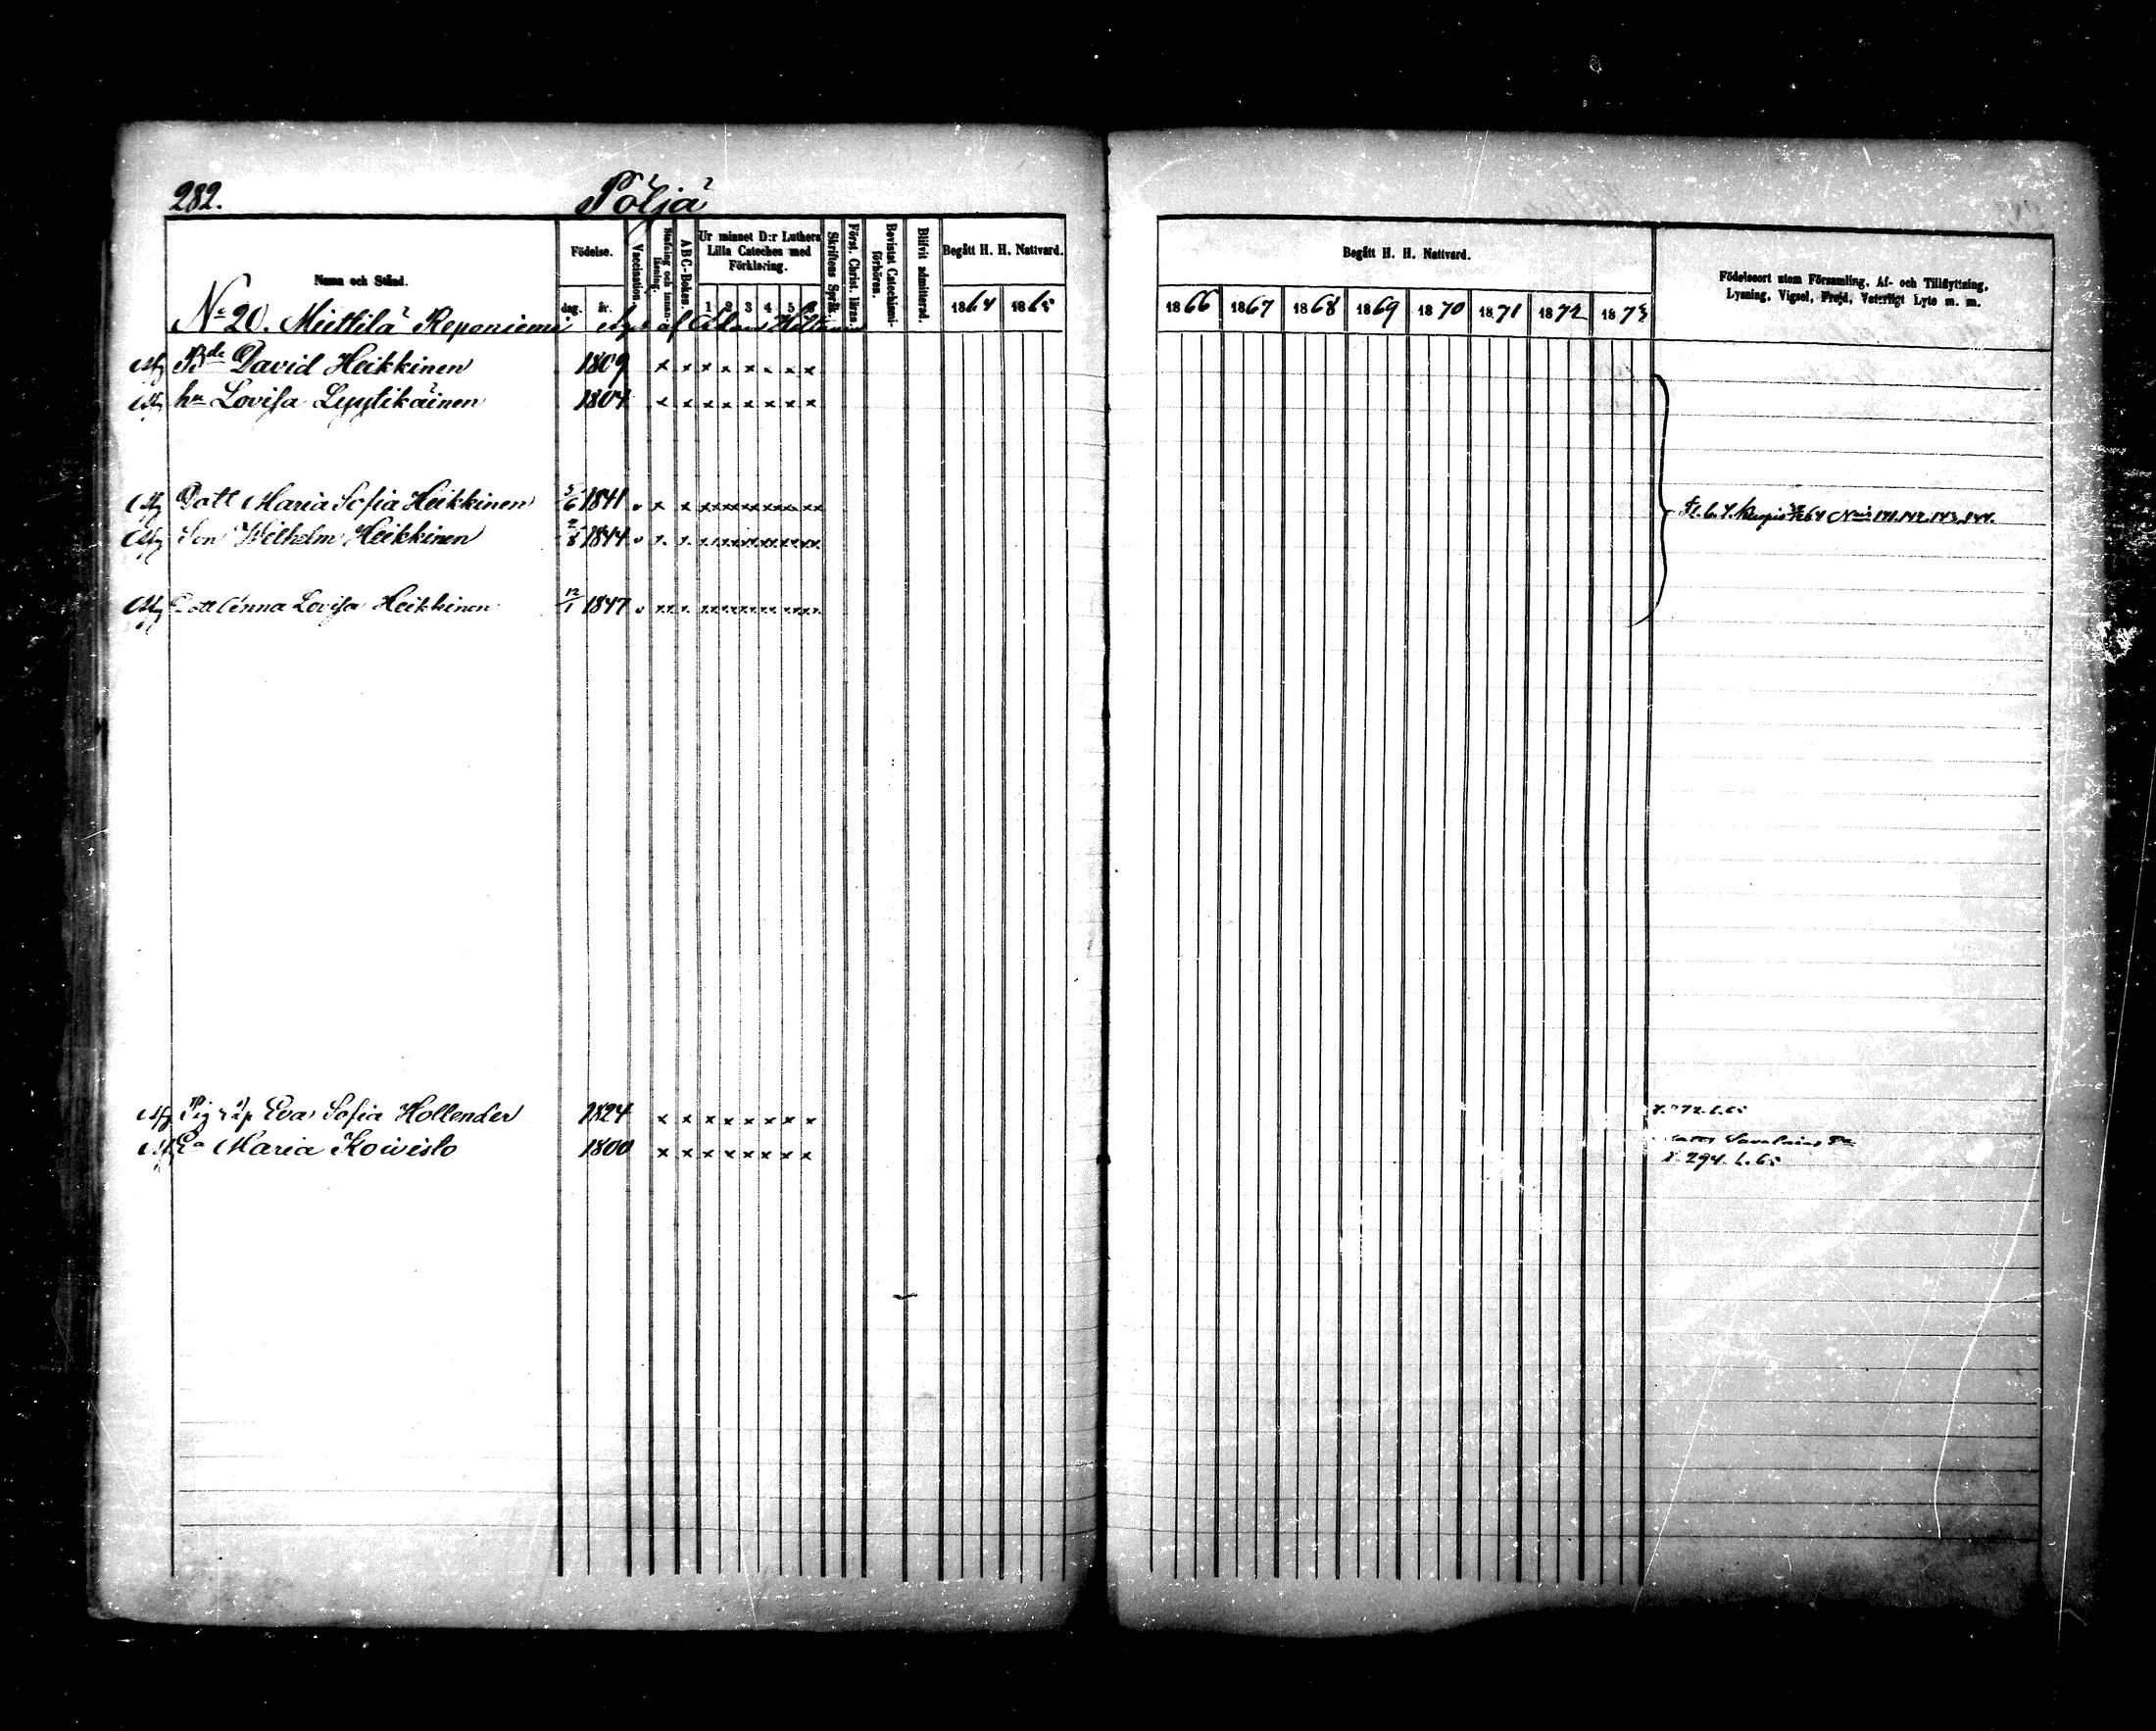 282.
Pöljä
Namn och Stånd.
Födelse.
dag.
år.
Vaccination.
Stafning och innan-läsning.
ABC-Boken.
Ur minnet D:r Luthers Lilla Cateches med Förklaring.
1 2 3 4 5
Skriftens Språk.
Först. Christ. lärna
Bevistat Catechismi-förhören.
Blifvit admitterad.
Begått H. H. Nattvard.
1864 1865
No 20. Miettilä Reponiemi af Adam
Bde David Heikkinen 1809 x x x x x x x x
hu Lovisa Lyytikäinen 1804 x x x x x x x x
Dott Maria Sofia Heikkinen 5/6 1841
Son Wilhelm Heikkinen 2/8 1844
Dott Anna Lovisa Heikkinen 12/1 1847
Pig Eva Sofia Hollender 1824 x x x x x x x x
Maria Koivisto 1800 x x x x x x x x
Begått H. H. Nattvard.
1866 1867 1868 1869 1870 1871 1872 1873
Födelseort utom Församling, Af- och Tillflyttning,
Lysning, Vigsel, Frejd, Veterligt Lyte m. m.
64 141. 142. 143. 144.
294. 65